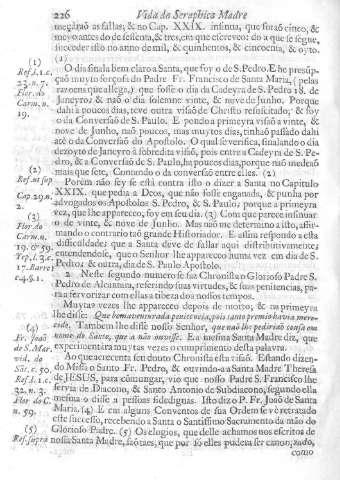 226 Vida do Seraphica Madre
meçaraõ as fallas; & no Cap. XXIX. insinua, que faraõ cinco, &
meyo antes do de sessenta, & tres, em que escreveo: do a que se segue,
succeder isto no anno de mil, & quinhentos, & cincoenta, & oyto.
(1)
O dia sinala bem claro a Santa, que foy o de S. Pedro. E he presup-
çaõ muyto forçosa do Padre Fr. Francisco de Santa Maria, (pelas
razoens que allega,) que fosse o dia da Cadeyra de S. Pedro 18. de
Janeyro; & naõ o dia solemne vinte, & nove de Junho. Porque
dahi a poucos dias, teve outra visaõ de Christo resuscitado, & foy
o da Conversaõ de S. Paulo. E pondo a primeyra visaõ a vinte, &
nove de Junho, naõ poucos, mas muytos dias, tinhaõ passado dahi
atè o da Conversaõ do Apostolo. O qual se verifica, sinalando o dia
dezoyto de Janeyro à sobredita visaõ, pois entre a Cadeyra de S. Pe-
dro, & a Conversaõ de S. Paulo, ha poucos dias, porque naõ medeaõ
mais que sete, Contando o da conversaõ entre elles. (2)
Porèm naõ sey se està contra isto o dizer a Santa no Capitulo
XXIX. que pedia a Deos, que naõ fosse enganada, & punha por
advogados os Apostolos S. Pedro, & S. Paulo; porque a primeyra
vez, que lhe appareceo, foy em seu dia. (3) Com que parece insinuar
o de vinte, & nove de Junho. Mas naõ me determino a isto, affir-
mando o contrario taõ grande Historiador. E assim respondo a esta
difficuldade: que a Santa deve de fallar aqui distributivamente;
entendendose, que o Senhor lhe appareceo huma vez em dia de S.
Pedro; & outra, em dia de S. Paulo Apostolo.
2 Neste segundo numero se faz Chronista o Glorioso Padre S.
Pedro de Alcantara, referindo suas virtudes, & suas penitencias, pa-
ra a fervorizar com ellas a tibeza dos nossos tempos.
Muytas vezes lhe appareceo depois de morto, & na primeyra
lhe disse: Que bemaventurada penitencia, pois tanto premio havia mere-
cido. Tambem lhe disse nosso Senhor, que naõ lhe pediriaõ cousa em
nome do Santo, que a naõ ouvisse. E a mesma Santa Madre diz, que
experimentàra muytas vezes o cumprimento desta palavra.
Ao que acrecenta seu douto Chronista esta visaõ. Estando dizen-
do Missa o Santo Fr. Pedro, & ouvindo-a a Santa Madre Theresa
de JESUS, para comungar, vio que nosso Padre S. Francisco lhe
servia de Diacono, & Santo Antonio de Subdiacono, segundo ella
mesma o disse a pessoas fidedignas. Isto diz o P. Fr. Joaõ de Santa
Maria. (4) E em alguns Conventos de sua Ordem se vè retratado
este successo, recebendo a Santa o Santissimo Sacramento da maõ do
Glorioso Padre. (5) Os elogios, que delle achamos nos escritos de
nossa Santa Madre, saõ taes, que por só elles pudera ser canonizado,
como
(1)
Ref.l.1.c.
23. n. 7.
Flor. do
Carm. n.
19.
(2)
Ref. ut sup.
Cap. 29. n.
2.
(3)
Flor. do
Carm. n.
19. & 59.
Yep. l. 3. c.
17. Barret
c. 4. §. 1.
(4)
Fr. Joaõ
de S. Mar.
vid. do
Sãt. c. 50.
Ref. l. 1. c.
32. n. 3.
Flor do C.
n. 59.
(5)
Ref. supra